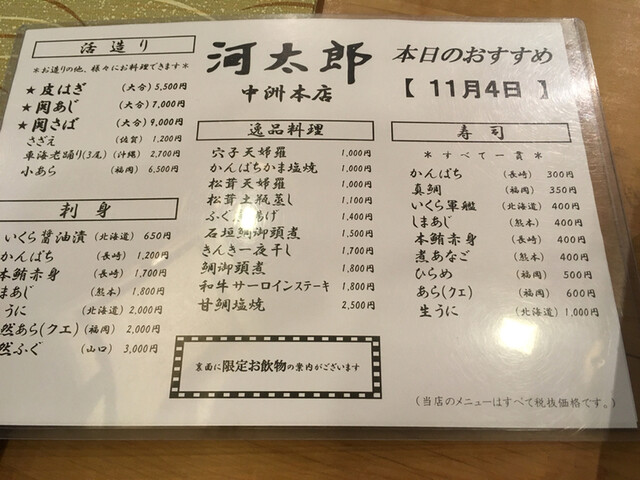 活造り
*お造りの他、様々にお料理できます*
★皮はぎ (大分) 5,500円
★関あじ (大分) 7,000円
★関さば (大分) 9,000円
さざえ (佐賀) 1,200円
車海老踊り(3尾) (沖縄) 2,700円
小あら (福岡) 6,500円
刺身
いくら醤油漬 (北海道) 650円
かんぱち (長崎) 1,200円
本鮪赤身 (長崎) 1,700円
まあじ (熊本) 1,800円
うに (北海道) 2,000円
然あら(クエ) (福岡) 2,000円
然ふぐ (山口) 3,000円
河太郎
中洲本店
逸品料理
穴子天婦羅 1,000円
かんぱちかま塩焼 1,000円
松茸天婦羅 1,000円
松茸土瓶蒸し 1,100円
ふぐ 揚げ 1,400円
石垣鯛御頭煮 1,500円
きんき一夜干し 1,700円
鯛御頭煮 1,800円
和牛サーロインステーキ 1,800円
甘鯛塩焼 2,500円
裏面に限定お飲物の案内がございます
本日のおすすめ
【 11月4日 】
寿司
*すべて一貫*
かんぱち (長崎) 300円
真鯛 (福岡) 350円
いくら軍艦 (北海道) 400円
しまあじ (熊本) 400円
本鮪赤身 (長崎) 400円
煮あなご (長崎) 400円
ひらめ (福岡) 500円
あら(クエ) (福岡) 600円
生うに (北海道) 1,000円
(当店のメニューはすべて税抜価格です。)